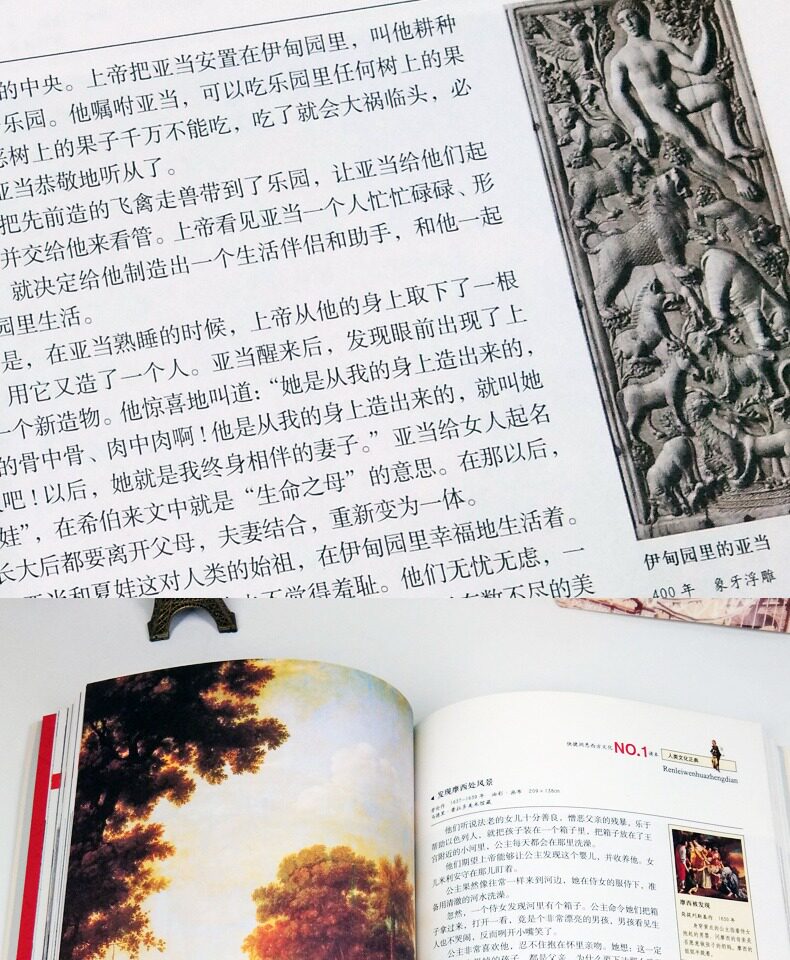 的中央。上帝把亚当安置在伊甸园里，叫他耕种
乐园。他嘱咐亚当，可以吃乐园里任何树上的果
恶树上的果子千万不能吃，吃了就会大祸临头，必
亚当恭敬地听从了。
把先前造的飞禽走兽带到了乐园，让亚当给他们起
并交给他来看管。上帝看见亚当一个人忙忙碌碌、形
就决定给他制造出一个生活伴侣和助手，和他一起
园里生活。
是，在亚当熟睡的时候，上帝从他的身上取下了一根
用它又造了一个人。亚当醒来后，发现眼前出现了上
一个新造物。他惊喜地叫道：“她是从我的身上造出来的，
的骨中骨、肉中肉啊！他是从我的身上造出来的，就叫她
吧！以后，她就是我终身相伴的妻子。”亚当给女人起名
娃”，在希伯来文中就是“生命之母”的意思。在那以后，
长大后都要离开父母，夫妻结合，重新变为一体。
亚当和夏娃这对人类的始祖，在伊甸园里幸福地生活着。
不觉得羞耻。他们无忧无虑，一
有数不尽的美
伊甸园里的亚当
400 年 象牙浮雕
快捷洞悉西方文化 NO.1 读本
人类文化正典
Renleiwenhuazhengdian
发现摩西处风景
1637—1639 年 油彩·画布 209×138cm
马德里 普拉多美术馆藏
他们听说法老的女儿十分善良，憎恶父亲的残暴，乐于
帮助以色列人，就把孩子装在一个箱子里，把箱子放在了王
宫附近的小河里，公主每天都会在那里洗澡。
他们期望上帝能够让公主发现这个婴儿，并收养他。女
儿米利安守在那儿盯着。
公主果然像往常一样来到河边，她在侍女的服侍下，准
备用清澈的河水洗澡。
忽然，一个侍女发现河里有个箱子。公主命令她们把箱
子拿过来，打开一看，竟是个非常漂亮的男孩，男孩看见生
人也不哭闹，反而咧开小嘴笑了。
公主非常喜欢他，忍不住抱在怀里亲吻。她想：这一定
的孩子，都是父亲
摩西被发现
1630 年